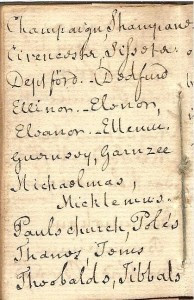 Champaign Shampane
Cirencester, Sisseter
Deptford. Dedfurd
Ellinor. Elenor,
Eleanor. Ellenur
Guernsey, Garnzee
Michaelmas,
Micklemus.
Pauls church, Poles
Thanes, Tems
Theobalds, Tibbals